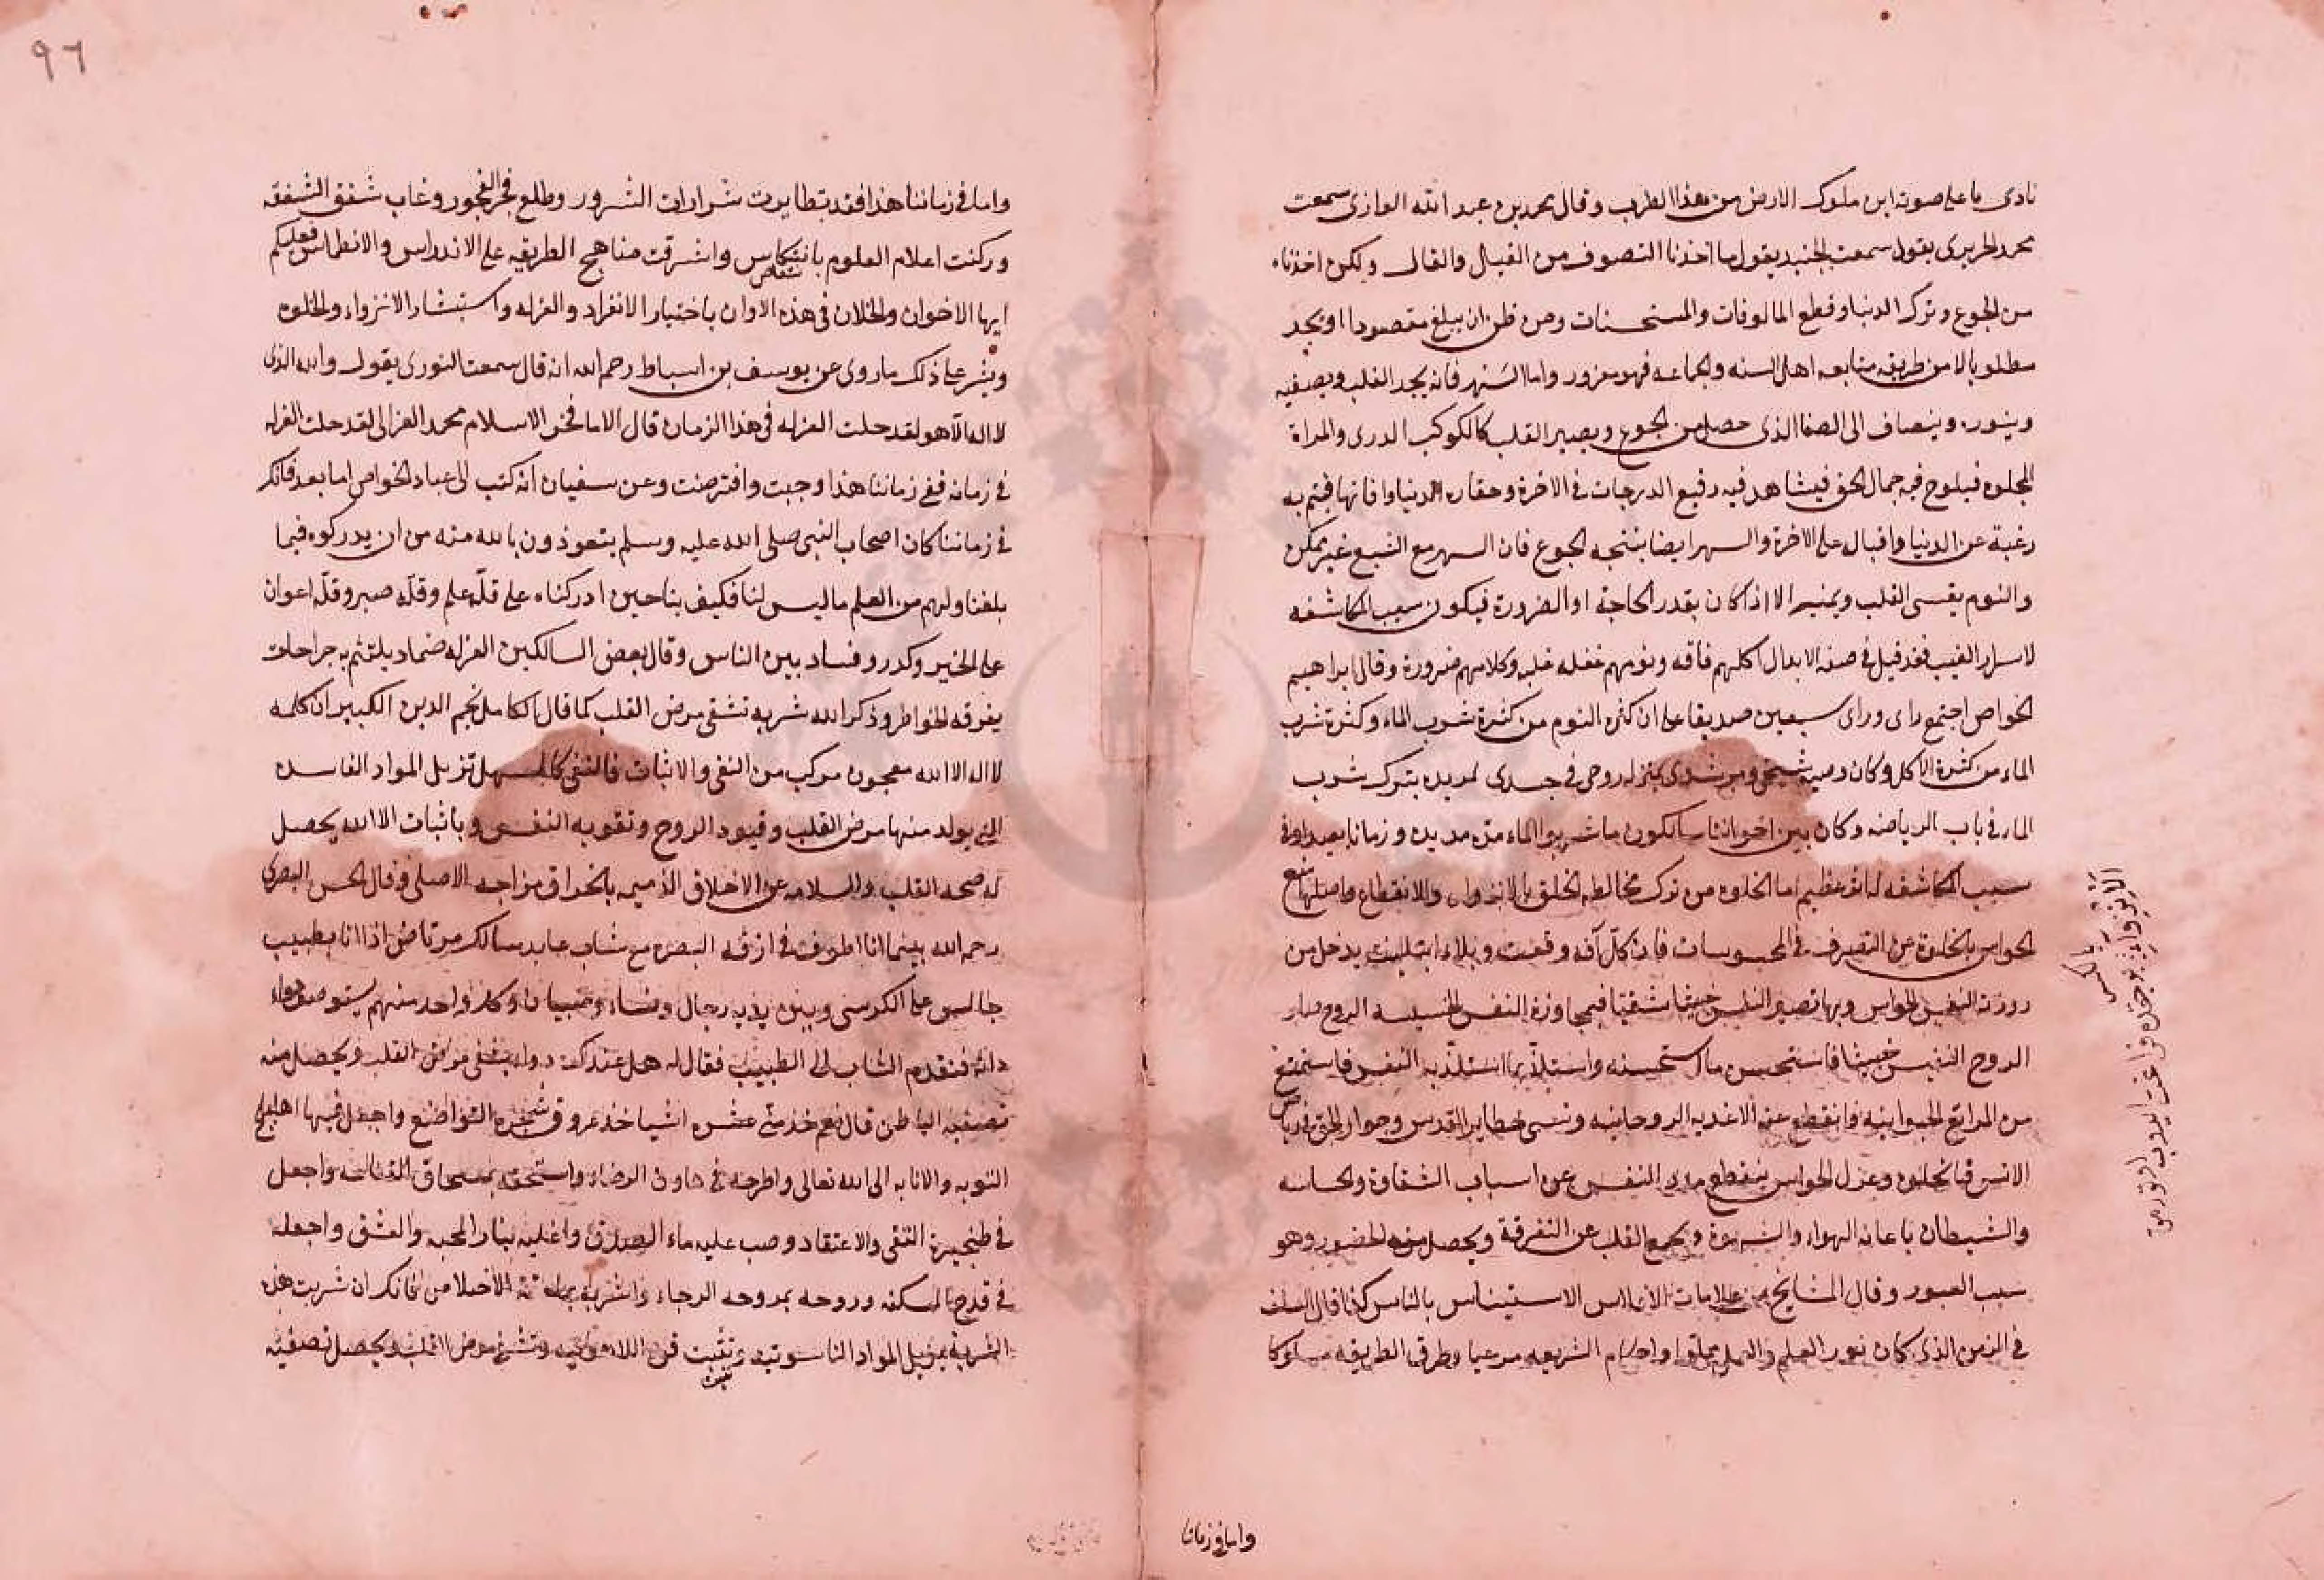 نادى باعلى صوته اين ملوك الارض من هذا الطرب وقال محمد بن عبد الله الرازى سمعت
محمد الجريرى يقول سمعت الجنيد يقول ما اخذنا التصوف من القيل والقال ولكن اخذناه
من الجوع وترك الدنيا وقطع المالوفات والمستحسنات ومن ظن ان يبلغ مقصودا او يجد
مطلوبا لا من طريق متابعه اهل السنه والجماعه فهو مغرور واما السهر فانه يجد القلب ويصفيه
وينوره وينضاف الى الصفا الذى حصل من الجوع ويصير القلب كالكوكب الدرى والمراة
المجلوه فيلوح فيه جمال الحق فيشاهد فيه رفيع الدرجات فى الاخرة وحقاره الدنيا وافاتها فيتم به
رغبة عن الدنيا واقبال على الاخرة والسهر ايضا ينتجه الجوع فان السهر مع الشبع غير يمكن
والنوم يقسى القلب ويميته الا اذا كان بقدر الحاجة او الضرورة فيكون سبب المكاشفه
لاسرار الغيب فقد قيل فى صفه الابدال اكلهم فاقه ونومهم غفله غلبه وكلامهم ضرورة وقال ابراهيم
الخواص اجتمع راى وراى سبعين صديقا على ان كثره النوم من كثرة شرب الماء وكثرة شرب
الماء من كثرة الاكل وكان شيخى ومرشدى بمنزله روحى فى جسدى لمريده بترك شرب
الماء فى باب الرياضه وكان بين اخواننا سالكون ما شربوا الماء مدة مديده وزمانا بعيدا
سبب المكاشفه اما الخلوه من ترك مخالطه الخلق بالانزواء والانقطاع واصلها منع
الحواس بالخلوة عن التصرف فى المحسوسات فان كل آفه وقعت وبلاء ابتليت يدخل من
روزنة النفس الحواس وبها تصير النفس خبيثا شقيا فبمجاوزة النفس الخسيسه الروح صار
الروح النفيس خبيثا فاستحسن ما استحسنه واستلذ بما استلذ به النفس فاستمتع
من المراتع الحيوانيه وانقطع عنه الاغذيه الروحانيه ونسى حظاير القدس وجوار الحق فى رياض
الانس فبالخلوه وعزل الحواس ينقطع مدد النفس عن اسباب الشقاوة والخاسه
والشيطان باعانه الهواء والشهوة ويجمع القلب عن التفرقة ويحصل منه الحضور وهو
سبب العبور وقال المشايخ من علامات الافلاس الاستيناس بالناس كذا قال السلف
فى الزمن الذى كان نور العلم والعمل واحكام الشريعه مرعيا وطرق الطريقه مسلوكا
واما فى زماننا
واما فى زماننا هذا فقد تطايرت شرارات الشرور وطلع فجر الفجور وغاب شفق الشفقه
وركنت اعلام العلوم بانتكاس واشرقت مناهج الطريقه على الاندراس والانطماس فعليكم
ايها الاخوان والخلان فى هذه الاوان باختيار الانفراد والعزله واستبشار الانزواء والخلوه
على ذلك ما روى عن يوسف بن اسباط رحم الله انه قال سمعت الثورى يقول والله الذى
لا اله الا هو لقد حلت العزله فى هذا الزمان قال الامام فخر الاسلام محمد الغزالى لقد حلت العزله
فى زمانه ففى زماننا هذا وجبت وافترضت وعن سفيان انه كتب الى عباد الخواص اما بعد فانك
فى زماننا كان اصحاب النبى صلى الله عليه وسلم يتعوذون بالله منه من ان يدركوه فيما
بلغنا ولهم من العلم ما ليس لنا فكيف بنا حين ادركناه على قلّة علم وقلّه صبر وقلّه اعوان
على الخير وكدر وفساد بين الناس وقال بعض السالكين العزله ضماد يلتئم به جراحات
بفرقه الخواطر وذكر الله شربه تشفى مرض القلب كما قال الكامل نجم الدين الكبير ان كلمه
لا اله الا الله معجون مركب من النفى والاثبات فالنفى كالمسهل تزيل المواد الفاسده
التى يولد منها مرض القلب وقيود الروح وتقويه النفس وباثبات الا الله يحصل
له صحه القلب والسلامه عن الاخلاق الذميمه مزاجه الاصلى وقال الحسن البصرى
رحم الله بينما انا اطوف فى ازقه البصره مع شاب عابد سالك مرتاض اذا انا بطبيب
جالس على الكرسى وبين يديه رجال ونساء وصبيان وكل واحد منهم يستوصف دواء
دائه فتقدم الشاب الى الطبيب فقال له هل عندك دواء يشفى مرض القلب ويحصل منه
تصفيه الباطن قال نعم خذ منى عشره اشيا خذ عروق شجره التواضع واجعل فيها
التوبه والانابه الى الله تعالى واطرحه فى هاون الرضاء واسحقه بمسحاق القناعه واجعل
فى طنجيرة التقى والاعتقاد وصب عليه ماء الصدق واغليه بنار المحبه والعشق واجعله
فى قدح السكنه وروحه بمروحه الرجاء واشربه بملعقة الاخلاص فانك ان شربت هذه
الشربة يزيل المواد الناسوتيه وتثبت اللاهوتيه وتشفى مرض القلب ويحصل تصفيه
٩٦